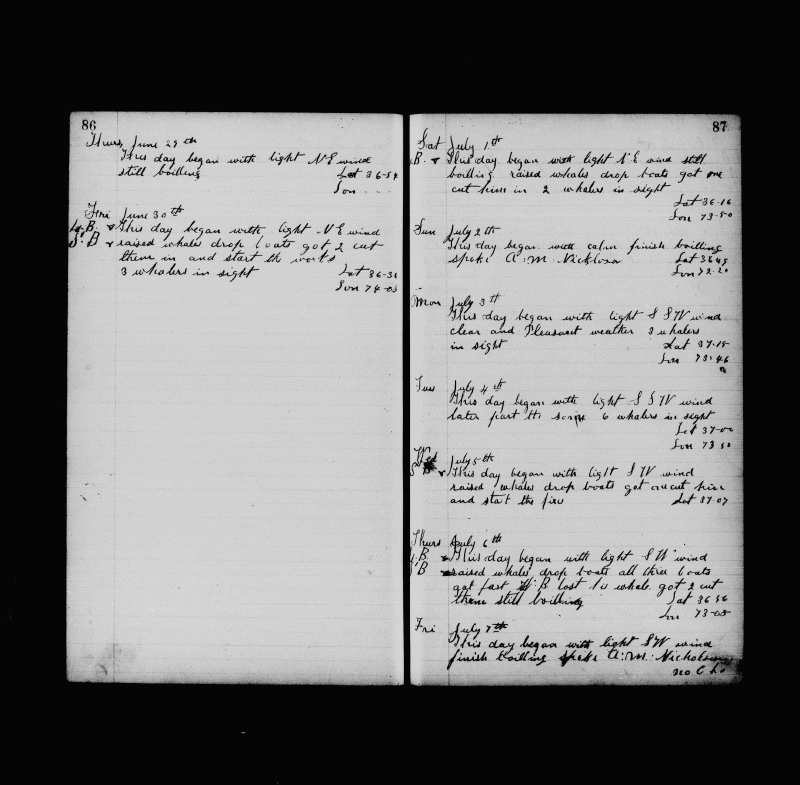 86
Thurs June 29th
This day began with light NE wind
still boiling Lat 36-54
Lon
Fri June 30th
L.B. This day began with light NE wind
S.B raised whales drop boats got 2 cut
them in and start the works
3 whalers in sight Lat 36-31
Lon 74-05
87
Sat July 1th
B. This day began with light NE wind still
boiling raised whales drop boats got one
cut him in 2 whalers in sight
Lat 36-16
Lon 73-50
Sun July 2th
This day began with calm finish boilling
spoke A.M. Nicklosn Lat 36 45
Lon 72-20
Mon July 3th
This day began with light S SW wind
clear and Pleasant weather 3 whalers
in sight Lat 37-15
Lon 73-46
Tus July 4th
This day began with light S SW wind
later part the same 6 whalers in sight
Lat 37-00
Lon 73 50
Wed July 5th
S B This day began with light SW wind
raised whales drop boats got one cut him
and start the fire Lat 37-07
Thurs July 6th
L.B. This day began with light SW wind
S B raised whales drop boats all three boats
got fast W.B lost 10 whale got 2 cut
theme still boilling Lat 36 56
Lon 73-05
Fri July 7th
This day began with light SW wind
finish boilling spoke A.M. Nicholson
no